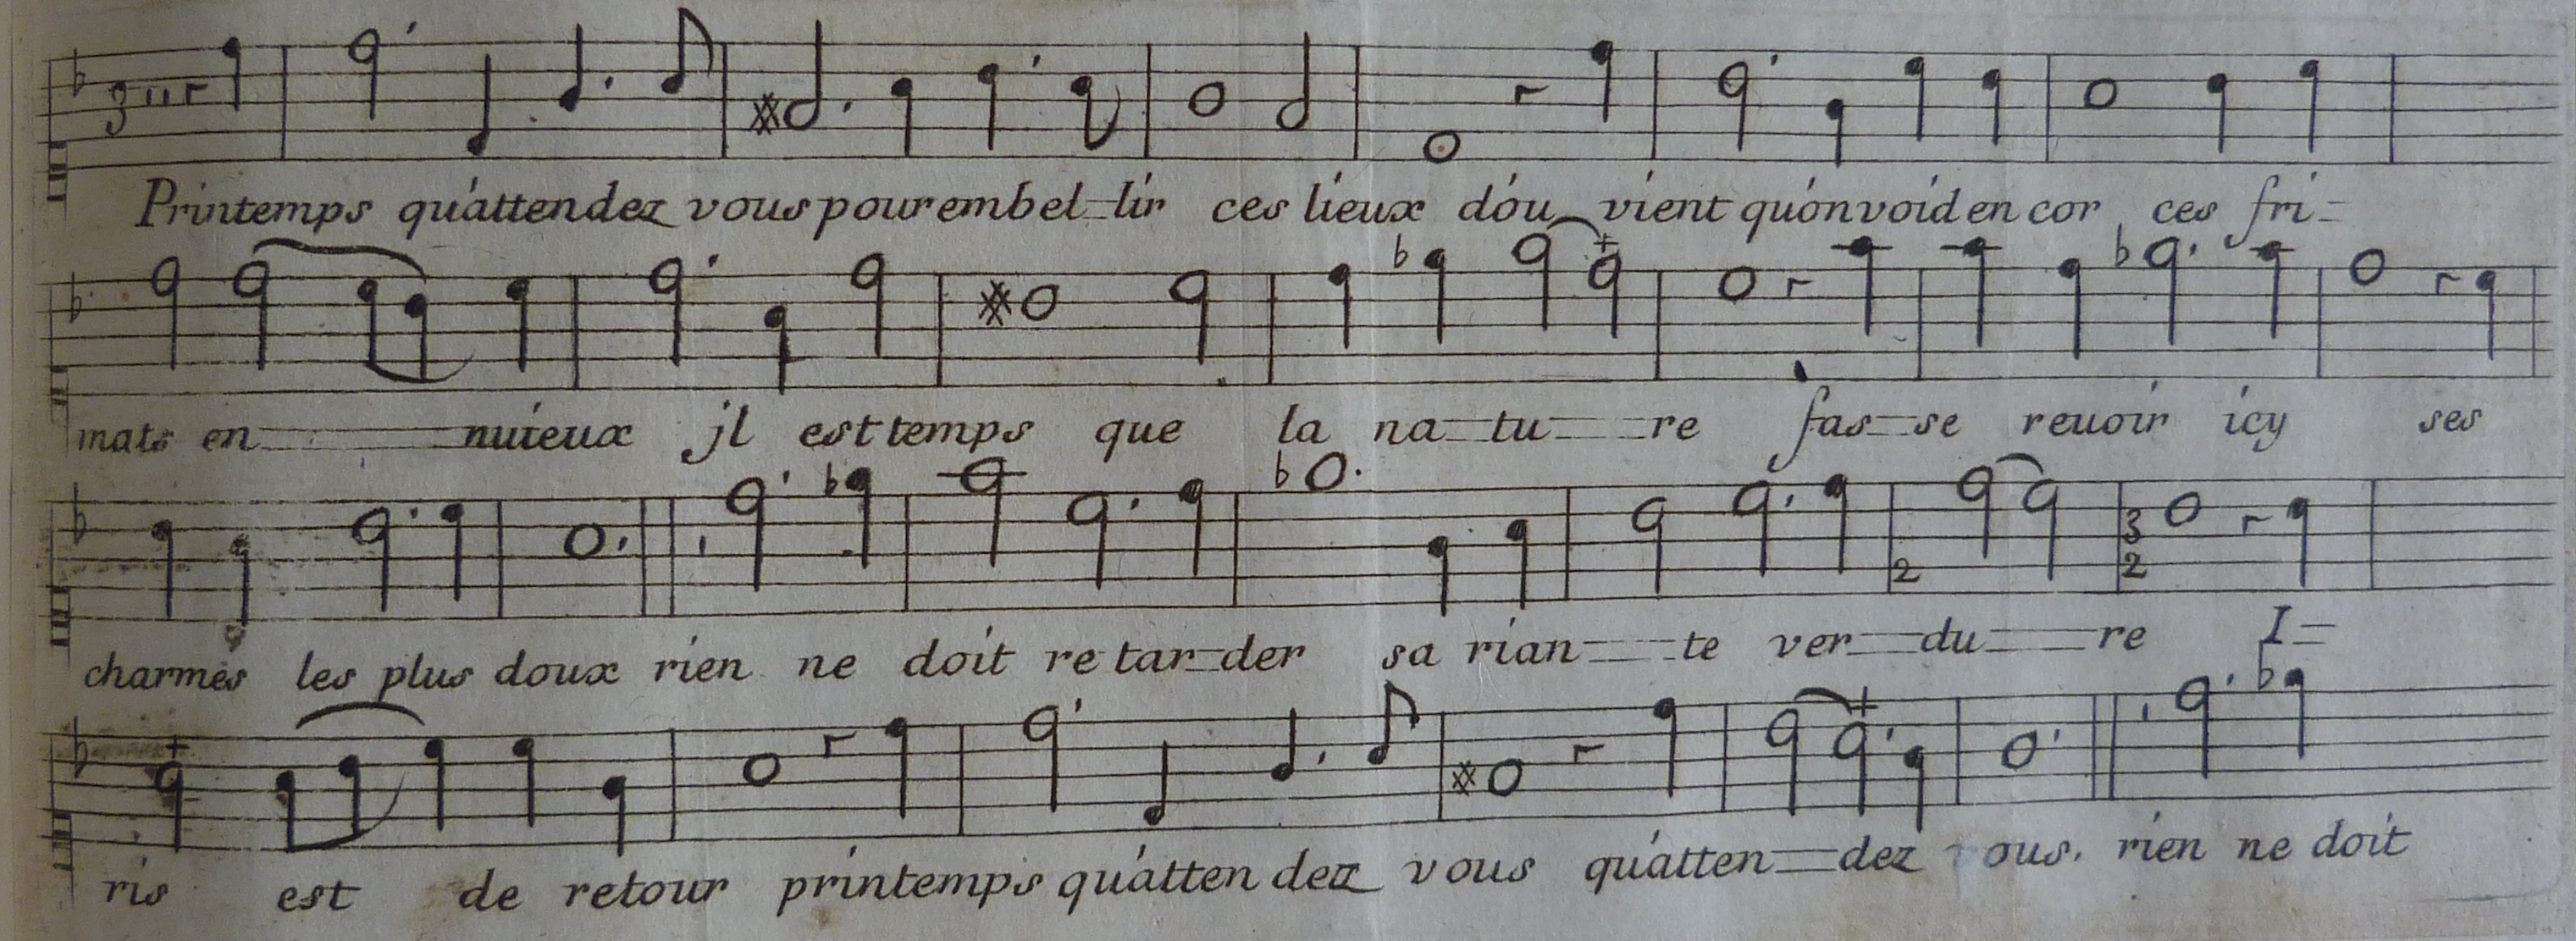 Printemps qu'attendez vous pour embel-lir ces lieux d'ou vient qu'on void en cor ces fri-
mats en nuieux jl est temps que la na-tu-re fas-se reuoir icy ses
charmes les plus doux rien ne doit re tar-der sa rian-te ver-du-re I-
ris est de retour printemps qu'atten dez vous qu'atten-dez ous. rien ne doit